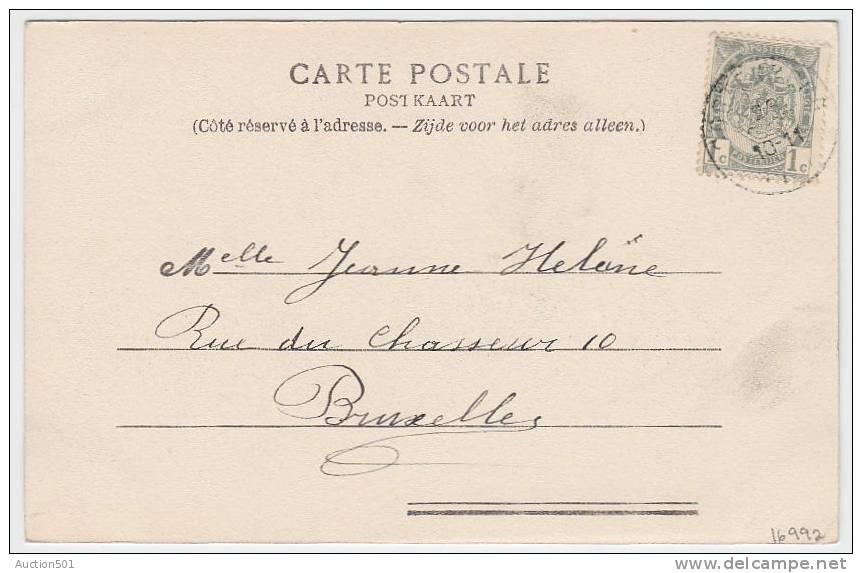 CARTE POSTALE
POSTKAART
(Côté réservé à l'adresse. — Zijde voor het adres alleen.)
10-11
c 1 c
Melle Jeanne Helène
Rue du Chasseur 10
Bruxelles
16992
Auction501
www.delcampe.net